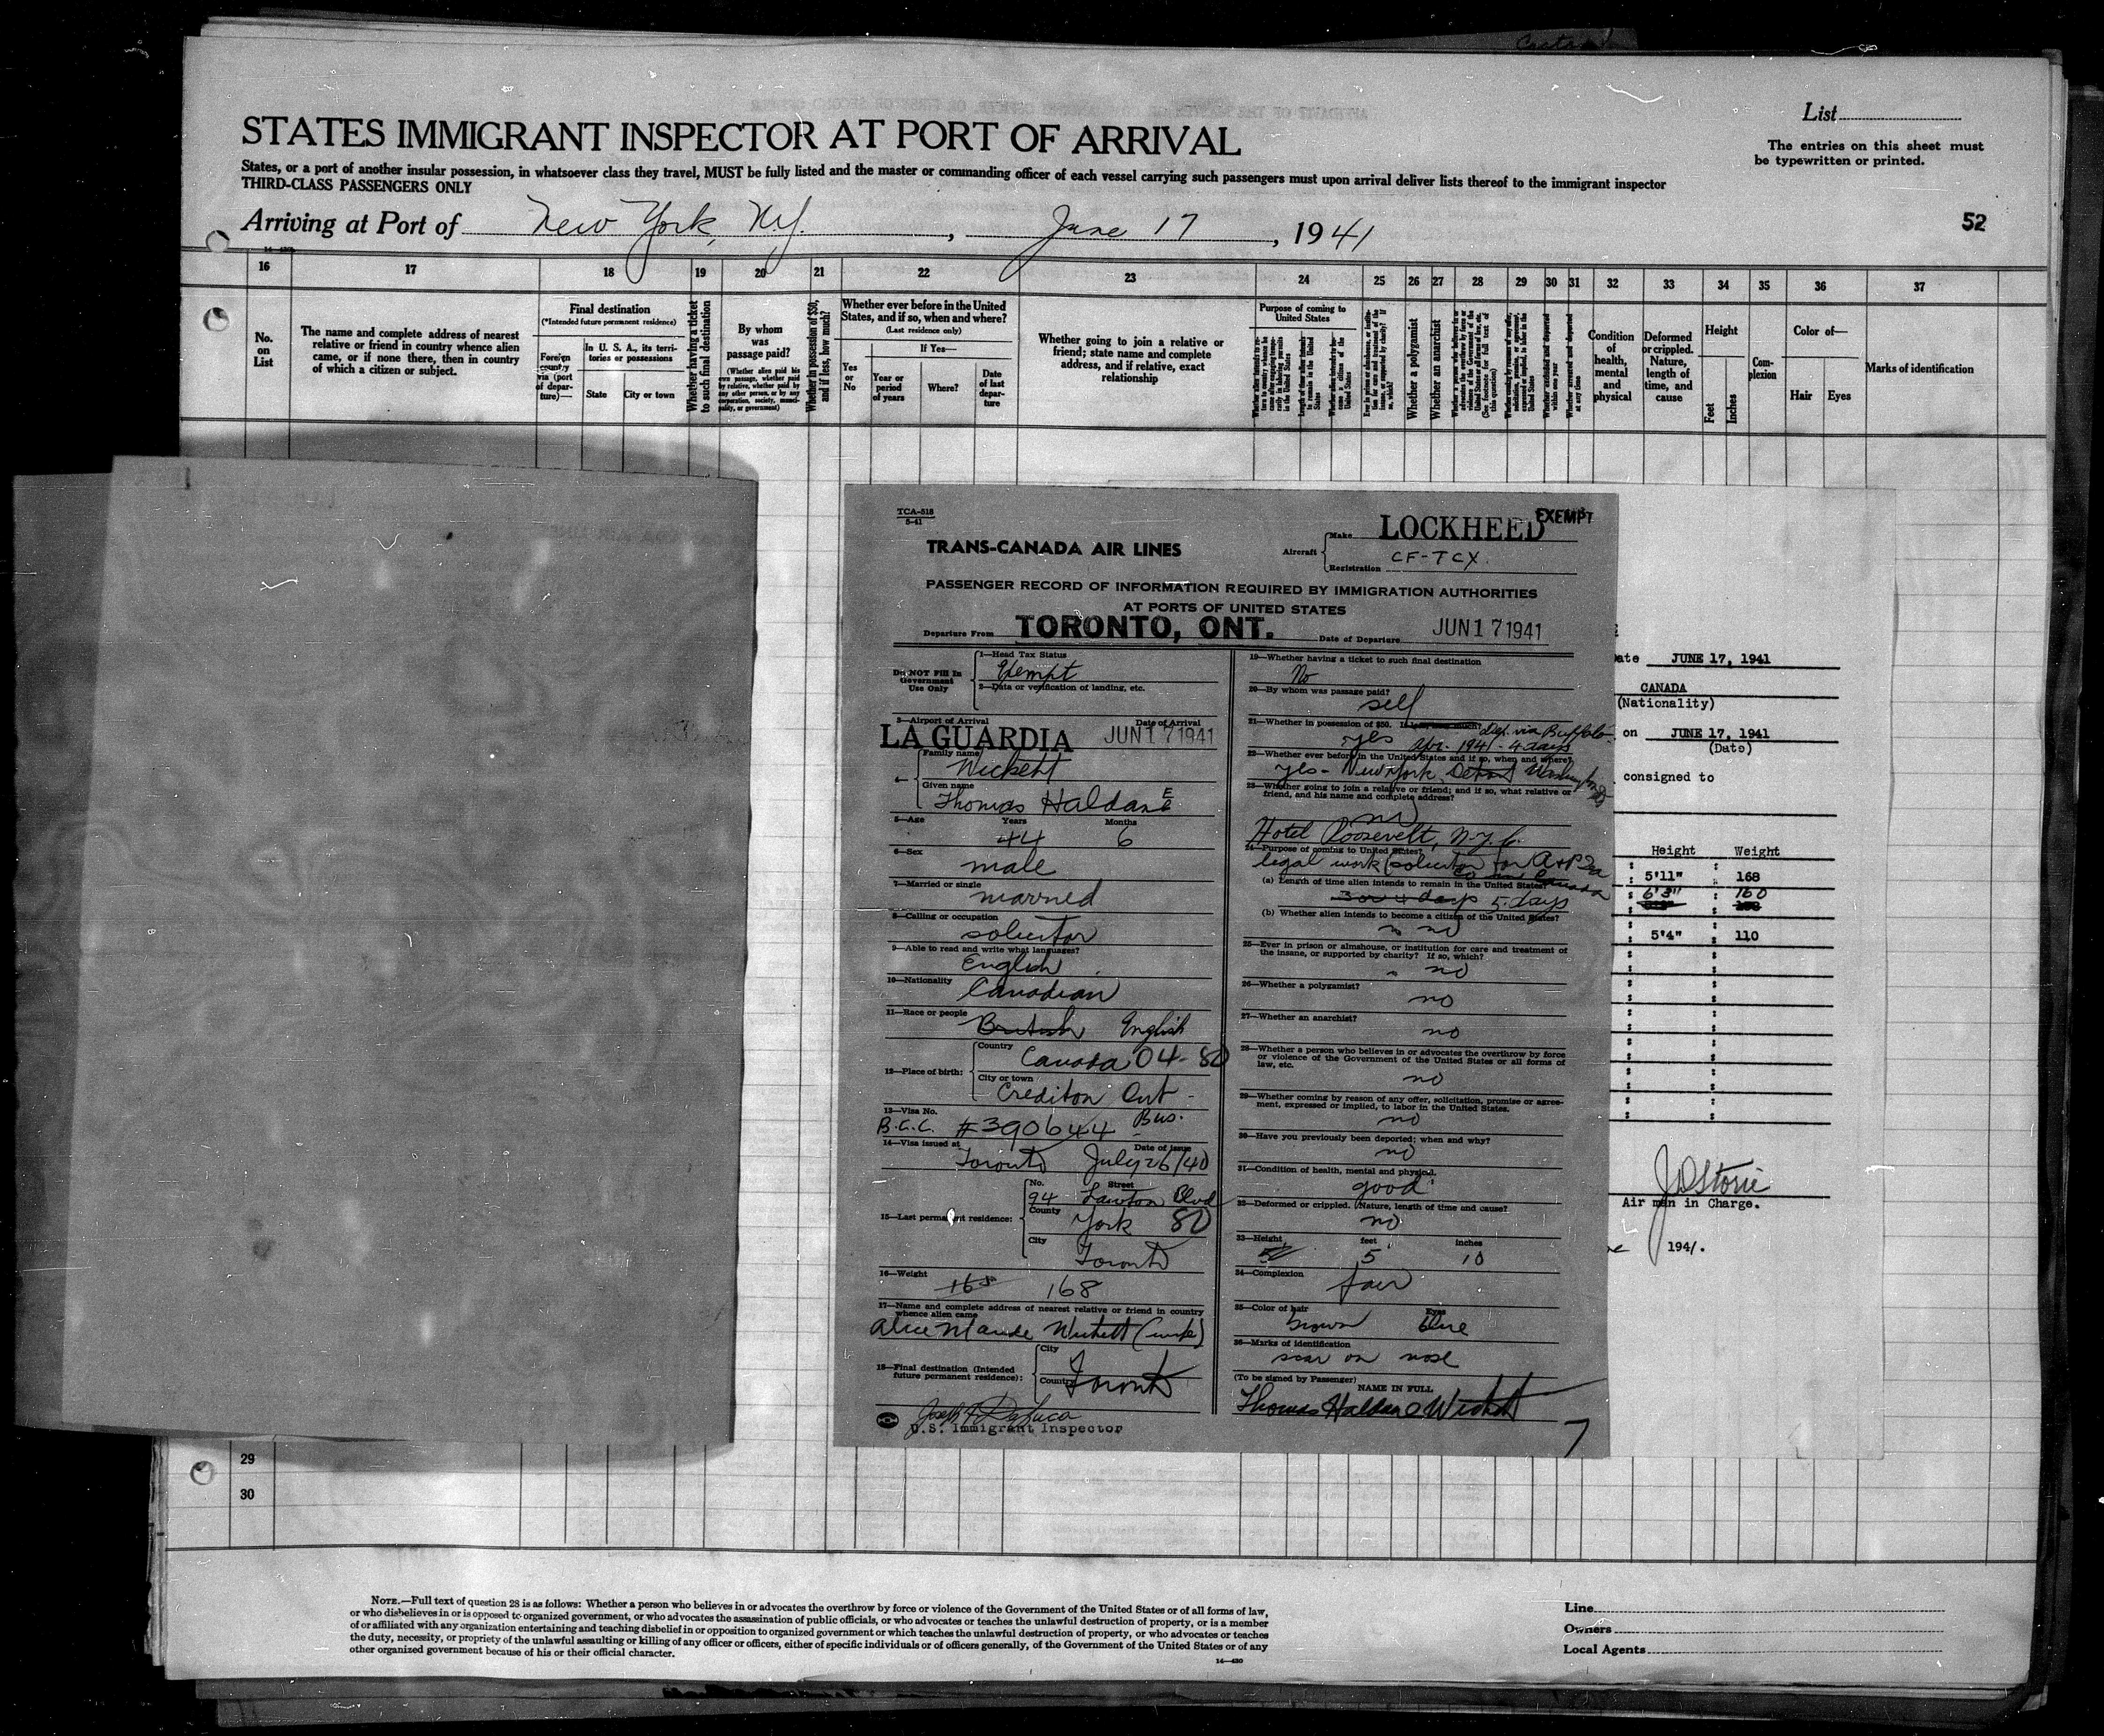 STATES IMMIGRANT INSPECTOR AT PORT OF ARRIVAL
List
The entries on this sheet must
be typewritten or printed.
States, or a port of another insular possession, in whatsoever class they travel, MUST be fully listed and the master or commanding officer of each vessel carrying such passengers must upon arrival deliver lists thereof to the immigrant inspector
THIRD-CLASS PASSENGERS ONLY
Arriving at Port of New York, N.Y., June 17, 1941
52
16 17 18 19 20 21 22 23 24 25 26 27 28 29 30 31 32 33 34 35 36 37
No. on List
The name and complete address of nearest
relative or friend in country whence alien
came, or if none there, then in country
of which a citizen or subject.
Final destination
(*Intended future permanent residence)
Foreign country via (port of departure)—
In U. S. A., its territories or possessions
State
City or town
Whether having a ticket to such final destination
By whom was passage paid?
(Whether alien paid his own passage, whether paid by relative, whether paid by any other person, or by any corporation, society, municipality, or government)
Whether in possession of $50, and if less, how much?
Whether ever before in the United
States, and if so, when and where?
(Last residence only)
Yes or No
If Yes—
Year or period of years
Where?
Date of last departure
Whether going to join a relative or
friend; state name and complete
address, and if relative, exact
relationship
Purpose of coming to United States
Whether a polygamist
Whether an anarchist
Condition of health, mental and physical
Deformed or crippled. Nature, length of time, and cause
Height
Feet
Inches
Complexion
Color of—
Hair
Eyes
Marks of identification
TCA-518
5-41
TRANS-CANADA AIR LINES
Aircraft
Make LOCKHEED
EXEMPT
Registration CF-TCX.
PASSENGER RECORD OF INFORMATION REQUIRED BY IMMIGRATION AUTHORITIES
AT PORTS OF UNITED STATES
Departure From TORONTO, ONT. Date of Departure JUN 17 1941
Do NOT Fill In
Government
Use Only
1—Head Tax Status
Exempt
2—Data or verification of landing, etc.
3—Airport of Arrival Date of Arrival
LA GUARDIA JUN 17 1941
4—
Family name
Wickett
Given name
Thomas Haldane
5—Age Years Months
44 6
6—Sex
male
7—Married or single
married
8—Calling or occupation
solicitor
9—Able to read and write what languages?
English
10—Nationality
Canadian
11—Race or people
British English
12—Place of birth:
Country
Canada 04-80
City or town
Crediton Ont -
13—Visa No.
B.C.C. #390644 Bus.
14—Visa issued at Date of issue
Toronto July 26/40
15—Last permanent residence:
No. Street
94 Lawton Blvd
County
York 80
City
Toronto
16—Weight
168 168
17—Name and complete address of nearest relative or friend in country
whence alien came
Alice Maude Wickett (wife)
18—Final destination (Intended
future permanent residence):
City
Country
Toronto
Joseph DeLuca
U.S. Immigrant Inspector
19—Whether having a ticket to such final destination
No
20—By whom was passage paid?
self
21—Whether in possession of $50. If less, how much? dep. via Buffalo
yes Apr. 1941 - 4 days
22—Whether ever before in the United States and if so, when and where?
yes - New York, Detroit Washington
23—Whether going to join a relative or friend; and if so, what relative or
friend, and his name and complete address?
no
Hotel Roosevelt, N.Y.C.
24—Purpose of coming to United States?
legal work (solicitor for A & P Tea
Co in Canada
(a) Length of time alien intends to remain in the United States?
3 or 4 days 5 days
(b) Whether alien intends to become a citizen of the United States?
no
25—Ever in prison or almshouse, or institution for care and treatment of
the insane, or supported by charity? If so, which?
no
26—Whether a polygamist?
no
27—Whether an anarchist?
no
28—Whether a person who believes in or advocates the overthrow by force
or violence of the Government of the United States or all forms of
law, etc.
no
29—Whether coming by reason of any offer, solicitation, promise or agree-
ment, expressed or implied, to labor in the United States.
no
30—Have you previously been deported; when and why?
no
31—Condition of health, mental and physical.
good
32—Deformed or crippled. (Nature, length of time and cause?
no
33—Height feet inches
5 10
34—Complexion
fair
35—Color of hair Eyes
brown blue
36—Marks of identification
scar on nose
(To be signed by Passenger)
NAME IN FULL
Thomas Haldane Wickett
7
Date JUNE 17, 1941
CANADA
(Nationality)
on JUNE 17, 1941
(Date)
consigned to
Height Weight
5'11" 168
6'3" 160
5'4" 110
J D Storie
Air men in Charge.
1941.
29
30
NOTE.—Full text of question 28 is as follows: Whether a person who believes in or advocates the overthrow by force or violence of the Government of the United States or of all forms of law,
or who disbelieves in or is opposed to organized government, or who advocates the assassination of public officials, or who advocates or teaches the unlawful destruction of property, or is a member
of or affiliated with any organization entertaining and teaching disbelief in or opposition to organized government or which teaches the unlawful destruction of property, or who advocates or teaches
the duty, necessity, or propriety of the unlawful assaulting or killing of any officer or officers, either of specific individuals or of officers generally, of the Government of the United States or of any
other organized government because of his or their official character.
14—430
Line
Owners
Local Agents